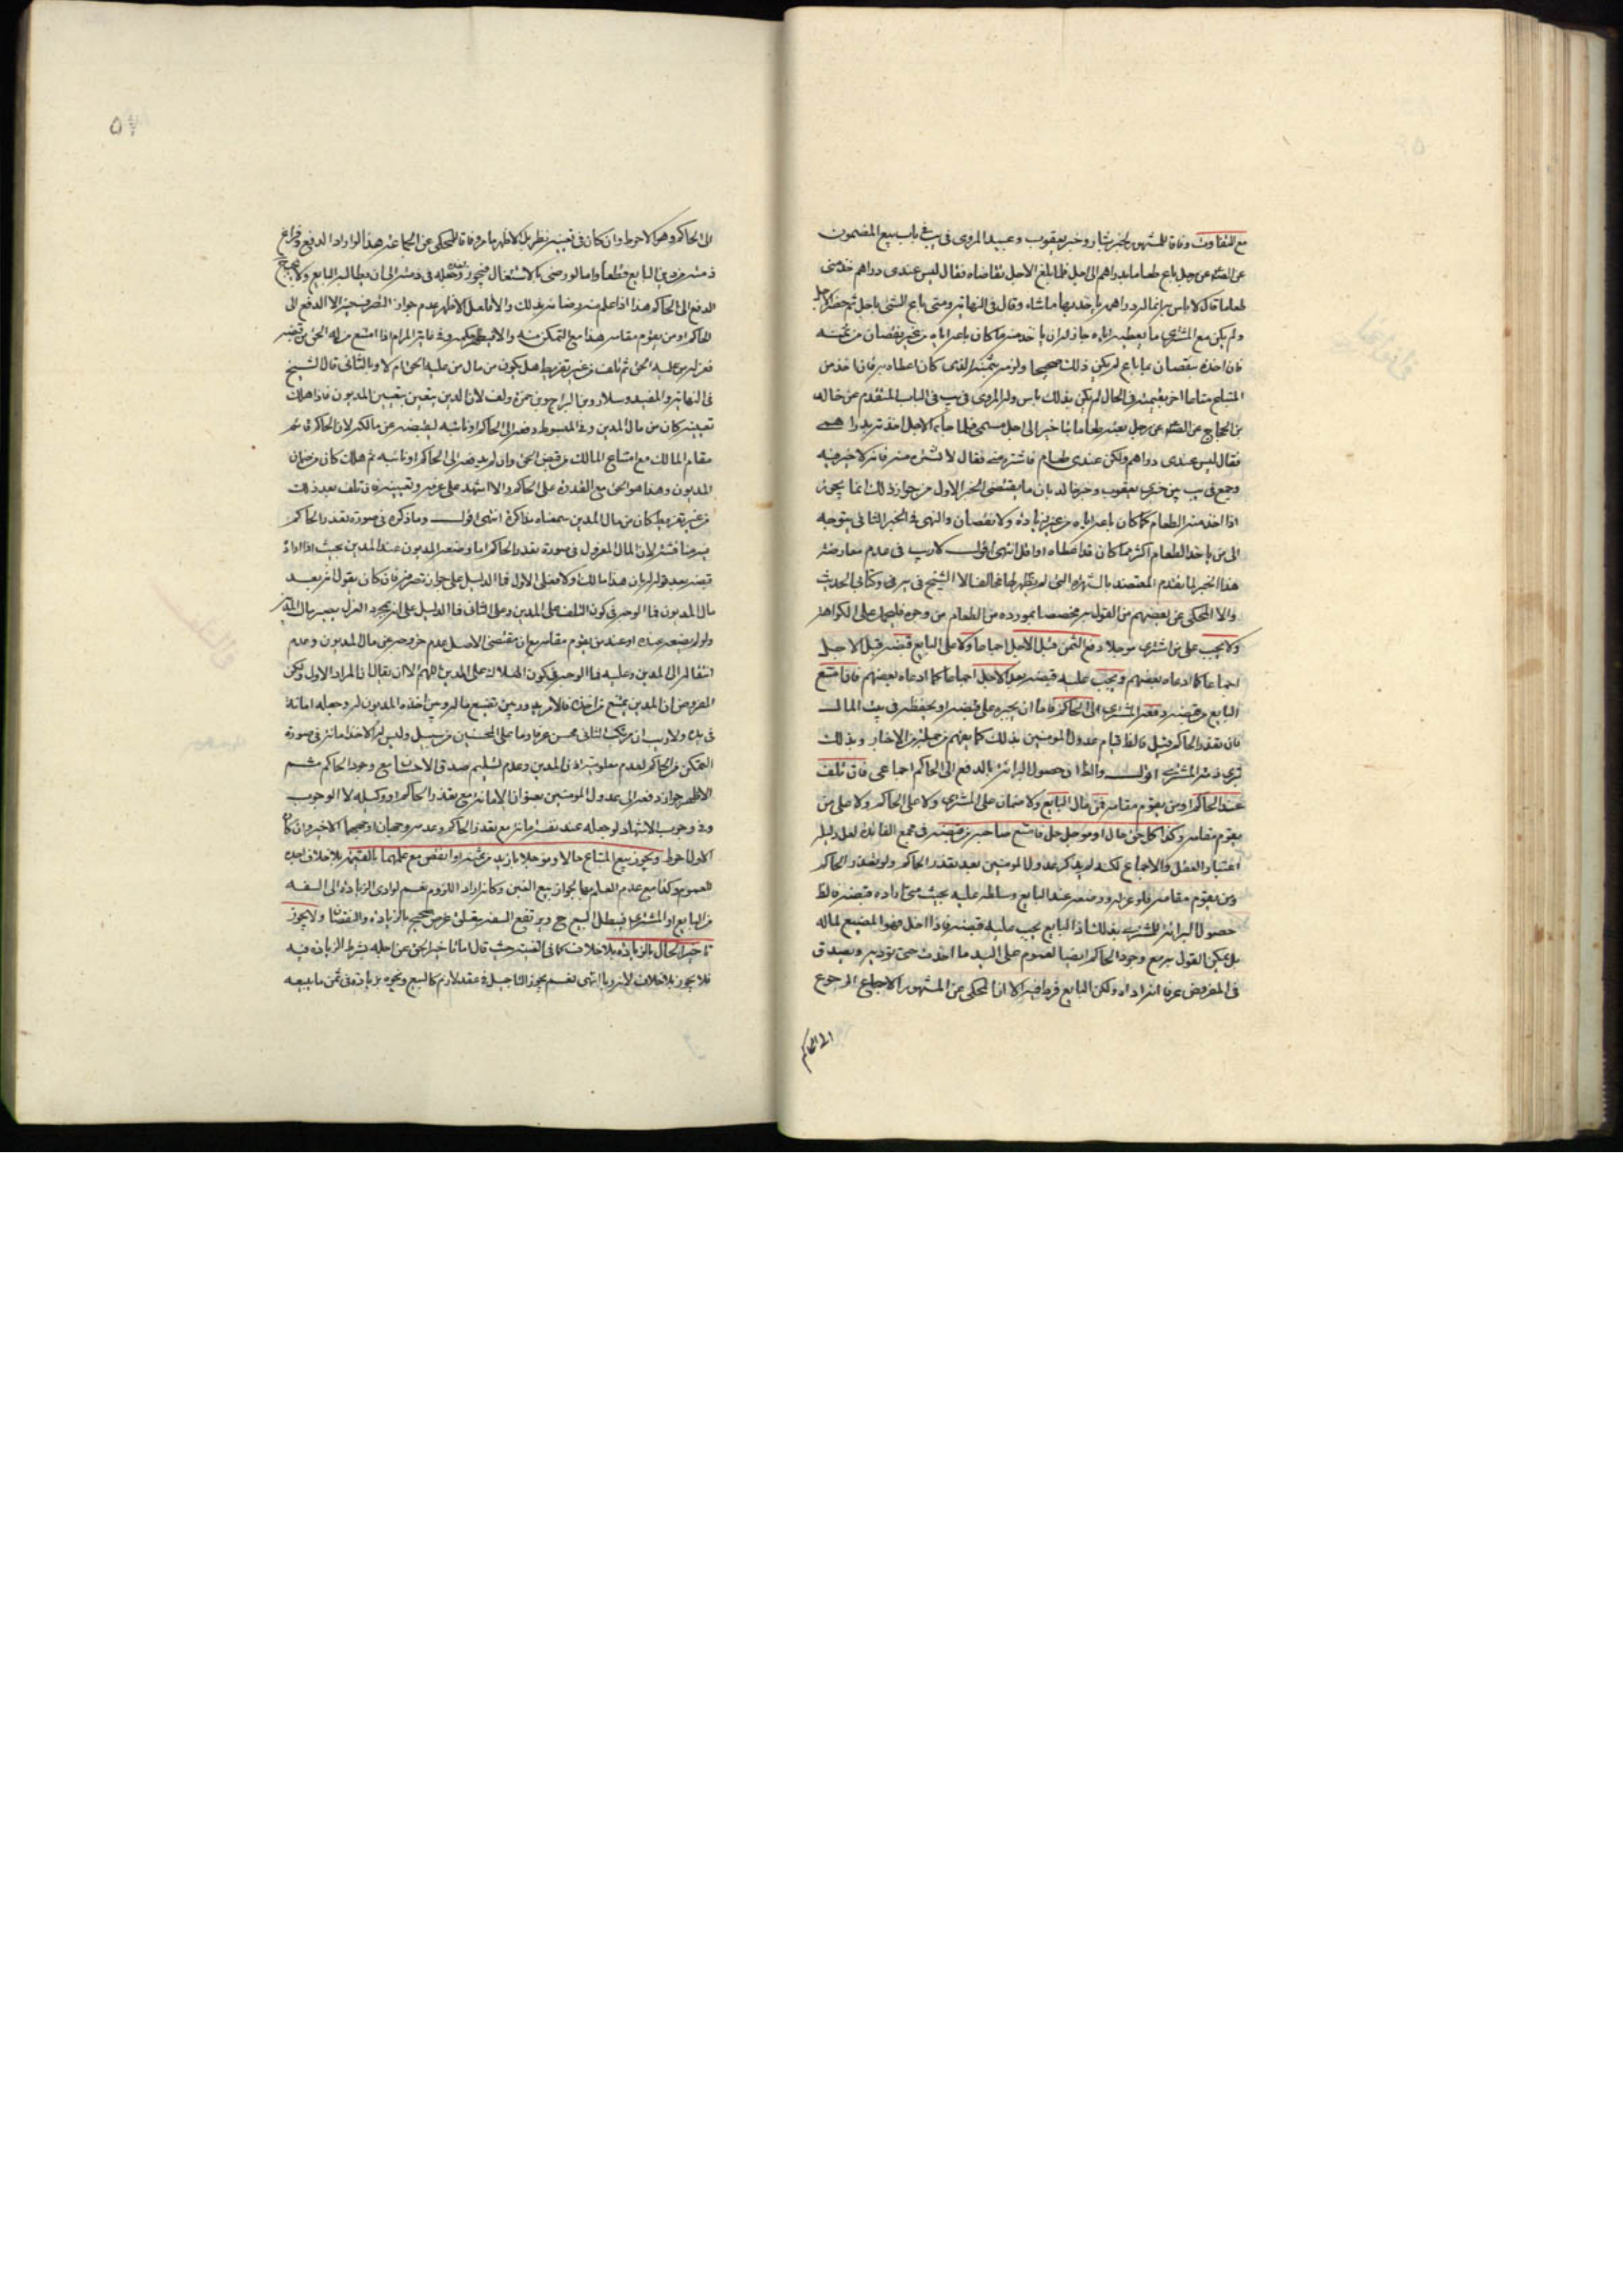 مع التفاوت وفاقا للمشهور لخبر بشار وخبر يعقوب وعبيد المروى فى يب فى باب بيع المضمون
عن الصـ عن رجل باع طعاما بدراهم الى اجل فلما بلغ الاجل تقاضاه فقال ليس عندى دراهم خذ منى
طعاما قال لا باس به انما له دراهمه ياخذ بها ما شاء وقال فى النهايه ومتى باع الشئ باجل ثم حضر الاجل
ولم يكن مع المشترى ما يعطيه اياه جاز له ان ياخذ منه ما كان باعه اياه من غير نقصان من ثمنه
فان اخذه بنقصان مما باع لم يكن ذلك صحيحا ولزمه ثمنه الذى كان اعطاه به فان اخذ من
المبتاع متاعا اخر بقيمته فى الحال لم يكن بذلك باس وله المروى فى يب فى الباب المتقدم عن خالد
بن الحجاج عن الصـ عن رجل بعته طعاما بتاخير الى اجل مسمى فلما جاء الاجل اخذته بدراهمى
فقال ليس عندى دراهم ولكن عندى طعام فاشتره منى فقال لا تشتره منه فانه لا خير فيه
وجمع فى يب بين خبرى يعقوب وخبر خالد بان ما يقتضى الخبر الاول من جواز ذلك انما يجوز
اذا اخذ منه الطعام كما كان باعه اياه من غير زيادة ولا نقصان والنهى فى الخبر الثانى يتوجه
الى من ياخذ الطعام اكثر مما كان قد اعطاه او اقل انتهى اقول لا ريب فى عدم معارضة
هذا الخبر لما يقدم المعتضد بالشهرة التى لم يظهر لها مخالف الا الشيخ فى يب فى وكتابى الحديث
والا المحكى عن بعضهم من القول به مخصصا بمورده من الطعام من وجوه فليحمل على الكراهة
ولا يجب على من اشترى موجلا دفع الثمن قبل الاجل اجماعا ولا على البايع قبضه قبل الاجل
اجماعا كما ادعاه بعضهم ويجب عليه قبضه بعد الاجل اجماعا كما ادعاه بعضهم فان امتنع
البايع من قبضه دفعه المشترى الى الحاكم فاما ان يجبره على قبضه او يحفظه فى بيت المال
فان تعذر الحاكم قيل فالظ قيام عدول المومنين بذلك كما يفهم من جملة من الاخبار وبذلك
تبرئ ذمة المشترى اقول والظا وحصول البرائة بالدفع الى الحاكم اجماعى فان تلف
عند الحاكم او من يقوم مقامه فمن مال البايع ولا ضمان على المشترى ولا على الحاكم ولا على من
يقوم مقامه وكذا كل حق حال او موجل حل فامتنع صاحبه من قبضه فى مجمع الفائدة لعل دليله
اعتبار العقل والاجماع لكنه لم يذكر عدول المومنين بعد تعذر الحاكم ولو تعذر الحاكم
ومن يقوم مقامه فلو عزله ووضعه عند البايع وسلطه عليه بحيث متى اراده قبضه فالظ
حصول البرائة للمشترى بذلك اذ البايع يجب عليه قبضه فاذا اخل فهو المضيع لماله
بل يمكن القول به مع وجود الحاكم ايضا لعموم على اليد ما اخذت حتى تؤديه ويصدق
فى المفروض عرفا انه اداه ولكن البايع فرط فيه الا ان المحكى عن المشهور الاجماع الرجوع
الى الحاكم
الى الحاكم وهو الاحوط وان كان فى تعينه نظر بل الاظهر ما مر وفاقا للمحكى عن الجماعة هذا لو اراد الدفع وفراغ
ذمته من دين البايع قطعا واما لو رضى بالاشتغال فيجوز ... فى ذمته الى ان يطالبه البايع ولا يجب
الدفع الى الحاكم هذا اذا علم منه رضائه بذلك والا فلعل الاظهر عدم جواز التصرف حينئذ الا الدفع الى
الحاكم او من يقوم مقامه هذا مع التمكن منه والا ... وفى غاية المرام اذا امتنع من له الحق من قبضه
فعزله من عليه الحق ثم تلف من غير تفريط هل يكون من مال من عليه الحق ام لا وبالثانى قال الشيخ
فى النهاية والمفيد وسلار وبن البراج وبن حمزة ولف لان الدين يتعين بتعيين المديون فاذا هلك
تعيينه كان من مال المدين وفى المبسوط دفعه الى الحاكم او نائبه ليقبضه عن مالكه لان الحاكم قائم
مقام المالك مع امتناع المالك من قبض الحق وان لم يدفعه الى الحاكم او نائبه ثم هلك كان من ضمان
المديون وهذا هو الحق مع القدرة على الحاكم والا اشهد على عزله وتعيينه فان تلف بعد ذلك
من غير تفريط كان من مال المدين سمعناه مذاكرة انتهى اقول وما ذكره فى صورة تعذر الحاكم
فيه مناقشة لان المال المعزول فى صورة تعذر الحاكم اما وضعه المديون عند المدين بحيث اذا اراد
قبضه بعد قوله له بان هذا مالك ولا فعلى الاول فما الدليل على جواز تصرفه فان كان يقول انه بعد
مال المديون فما الوجه فى كون التلف على المدين وعلى الثانى فما الدليل على انه بمجرد العزل يصير مال المدين
ولو لم يضعه عنده او عند من يقوم مقامه مع ان مقتضى الاصل عدم خروجه عن مال المديون وعدم
انتقاله الى المدين وعليه فما الوجه فى كون الهلاك على المدين اللهم الا ان يقال ان المراد الاول ولكن
المفروض ان المدين يمتنع من اخذه فالامر يدور بين تضييع ماله وبين اخذه المديون له وجعله امانة
فى يده ولا ريب ان مرتكب الثانى محسن عرفا وما على المحسنين من سبيل وليس له الاخذ امانة فى صورة
التمكن من الحاكم لعدم معلومية اذن المدين وعدم تسليم صدق الاحسان مع وجود الحاكم ثم
الاظهر جواز دفعه الى عدول المومنين بعنوان الامانة مع تعذر الحاكم او وكيله لا الوجوب
وفى وجوب الاشهاد لو جعله عند نفسه امانة مع تعذر الحاكم وعدمه وجهان اوجههما الاخير وان كان
الاول احوط ويجوز بيع المتاع حالا وموجلا بازيد من ثمنه او انقص مع علمهما بالقيمة بلا خلاف اجده
للعموم وكذا مع عدم العلم بها لجواز بيع الغبن وكانه اراد اللزوم نعم لو ادى الزيادة الى السفه
من البايع او المشترى فيبطل البيع ح ويرتفع السفه بتعلق غرض صحيح بالزيادة والنقصان ولا يجوز
تاخير الحال بالزيادة بلا خلاف كما فى الغنية حيث قال اما تاخير الحق عن اجله بشرط الزيادة فيه
فلا يجوز بلا خلاف لانه ربا انتهى نعم يجوز التاجيل فى عقد لازم كالبيع ونحوه بزيادة فى ثمن ما يبيعه